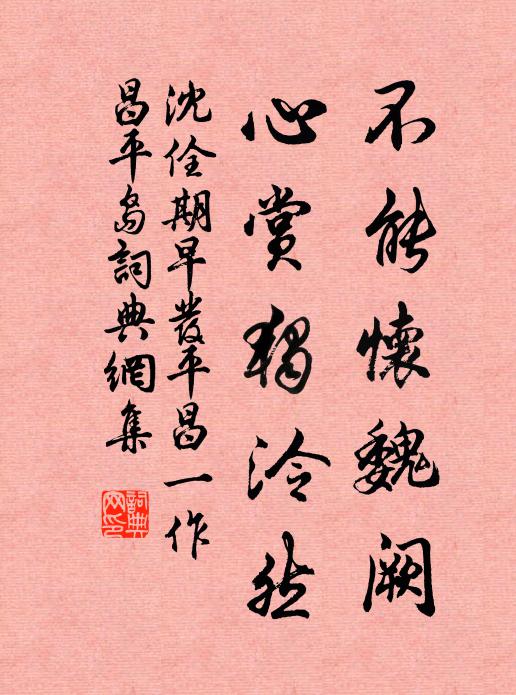 不能懷魏闕
心賞獨泠然
沈佺期早發平昌一作
昌平島詞典網集
詞典网印